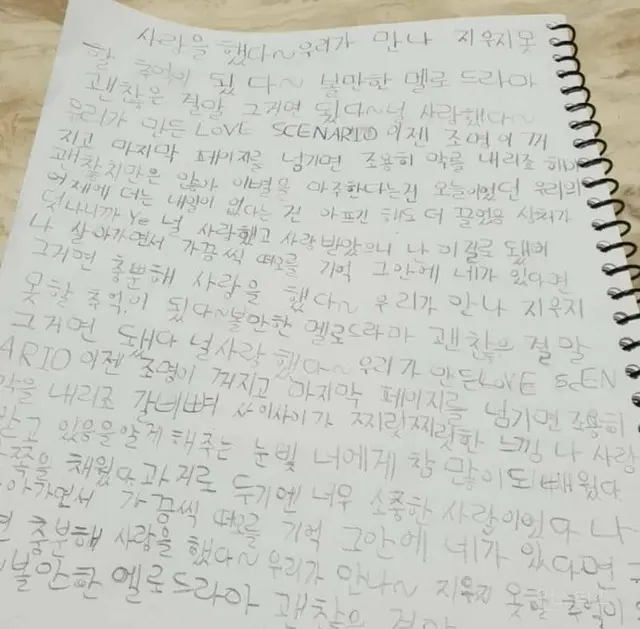 사랑을 했다~우리가 만나 지우지못
할 추억이 됬다~ 볼만한 멜로드라마
괜찮은 결말 그거면 됬다~널 사랑했다~
우리가 만든 LOVE SCENARIO 이젠 조명이 꺼
지고 마지막 페이지를 넘기면 조용히 막를 내리조
괜찮치만은 않아 이별을 마주한다는건 오늘이었던 우리의
어제에 더는 내일이 없다는 건 아프긴 해도 더 끌었음 상처가
덧나니까 Ye 널 사랑했고 사랑 받았으니 난 이걸로 됐어
나 살아가면서 가끔씩 떠오를 기억 그안에 네가 있다면
그거면 충뿐해 사랑을 했다~ 우리가 만나 지우지
못할 추억이 됬다~볼만한 멜로드라마 괜찮은 결말
그거면 됐다 널사랑 했다~ 우리가 만든LOVE SCEN
ARIO 이젠 조명이 꺼지고 마지막 페이지를 넘기면 조용히
막을 내리조 갈비뼈 사이사이가 찌릿찌릿한 느낌 나 사랑
받고 있음을알게 해주는 눈빛 너에게 참 많이도 배웠다
쪽을 채웠다 과거로 두기엔 너무 소중한 사람이었다 나
아가면서 가끔씩 떠오를 기억 그안에 네가 있다면
면 충분해 사랑을 했다~우리가 만나~ 지우지 못할 추억이
볼만한 멜로드라마 괜찮은 결말